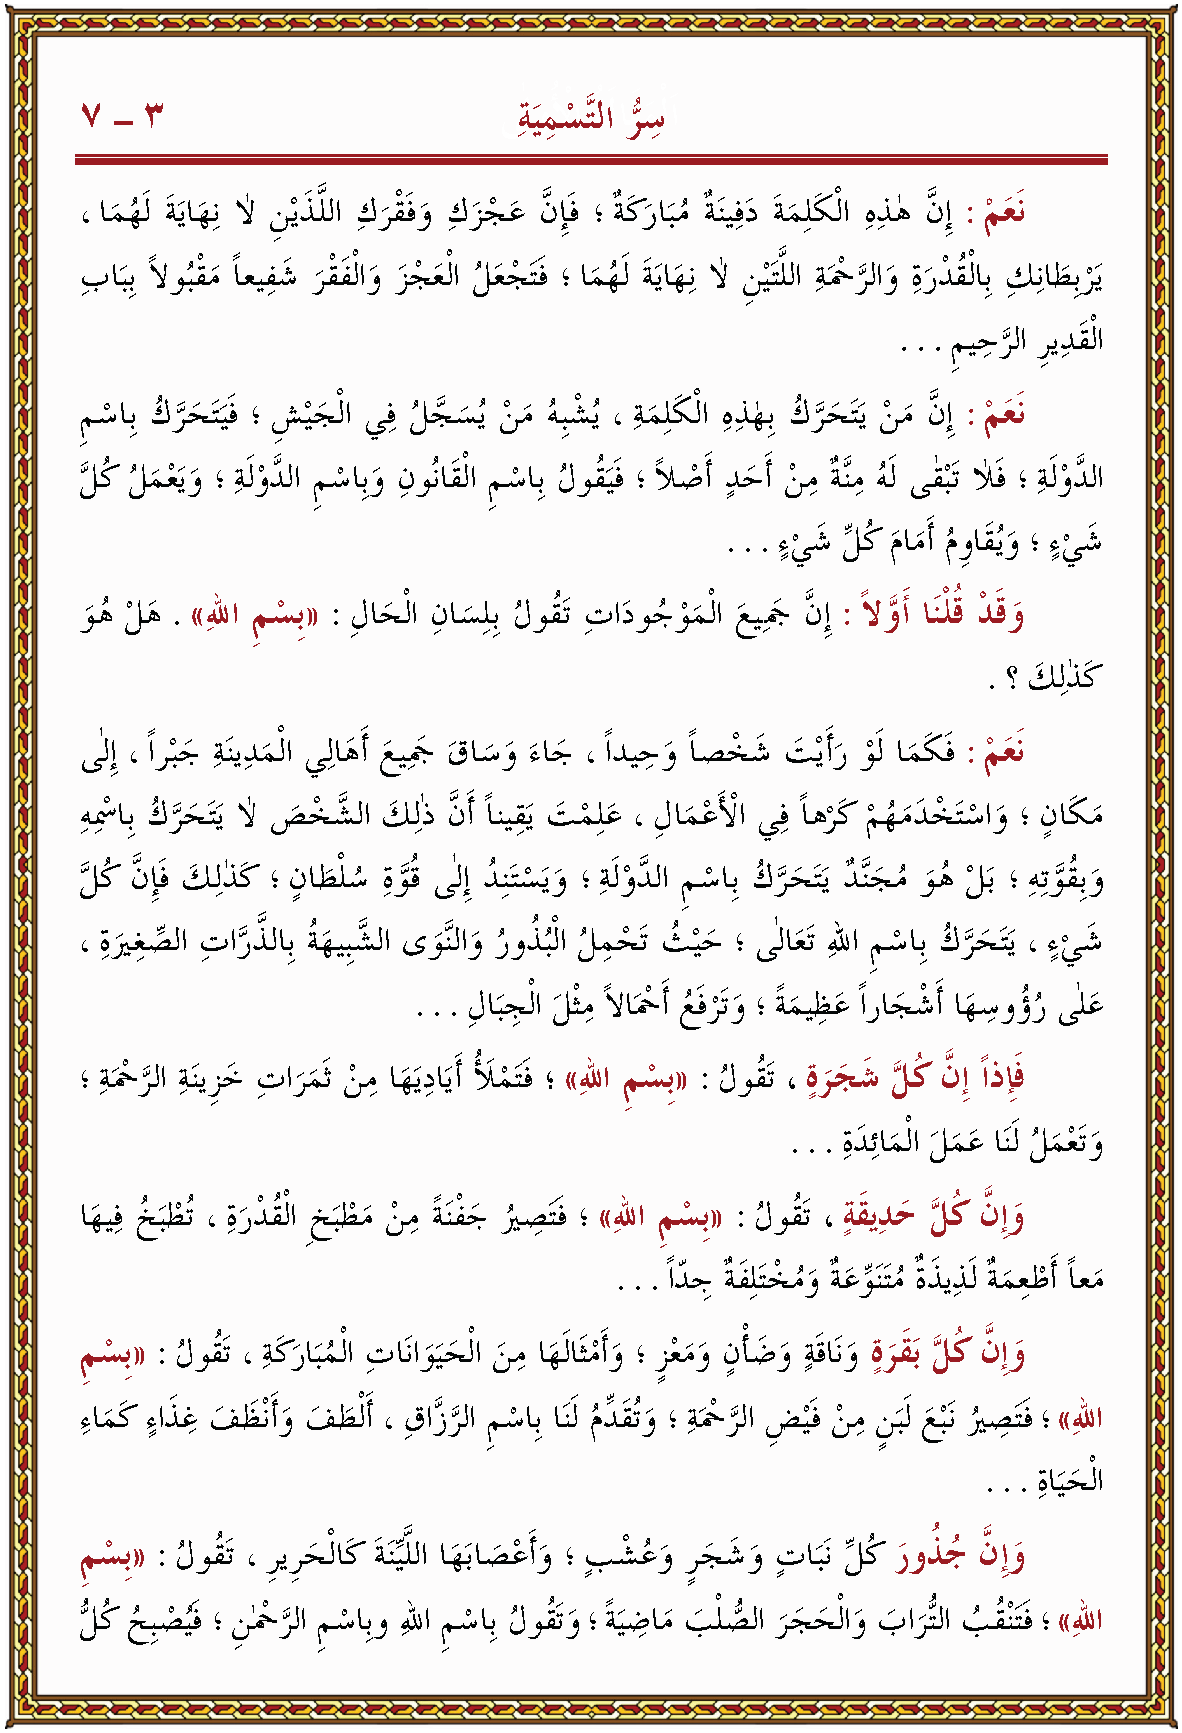 سِرُّ التَّسْمِيَةِ ٣ – ٧
نَعَمْ : إِنَّ هٰذِهِ الْكَلِمَةَ دَفِينَةٌ مُبَارَكَةٌ ؛ فَإِنَّ عَجْزَكِ وَفَقْرَكِ اللَّذَيْنِ لاٰ نِهَايَةَ لَهُمَا ،
يَرْبِطَانِكِ بِالْقُدْرَةِ وَالرَّحْمَةِ اللَّتَيْنِ لاٰ نِهَايَةَ لَهُمَا ؛ فَتَجْعَلُ الْعَجْزَ وَالْفَقْرَ شَفِيعاً مَقْبُولاً بِبَابِ
الْقَدِيرِ الرَّحِيمِ . . .
نَعَمْ : إِنَّ مَنْ يَتَحَرَّكُ بِهٰذِهِ الْكَلِمَةِ ، يُشْبِهُ مَنْ يُسَجَّلُ فِي الْجَيْشِ ؛ فَيَتَحَرَّكُ بِاسْمِ
الدَّوْلَةِ ؛ فَلاٰ تَبْقٰى لَهُ مِنَّةٌ مِنْ أَحَدٍ أَصْلاً ؛ فَيَقُولُ بِاسْمِ الْقَانُونِ وَبِاسْمِ الدَّوْلَةِ ؛ وَيَعْمَلُ كُلَّ
شَيْءٍ ؛ وَيُقَاوِمُ أَمَامَ كُلِّ شَيْءٍ . . .
وَقَدْ قُلْنَا أَوَّلاً : إِنَّ جَمِيعَ الْمَوْجُودَاتِ تَقُولُ بِلِسَانِ الْحَالِ : «بِسْمِ اللهِ» . هَلْ هُوَ
كَذٰلِكَ ؟ .
نَعَمْ : فَكَمَا لَوْ رَأَيْتَ شَخْصاً وَحِيداً ، جَاءَ وَسَاقَ جَمِيعَ أَهَالِي الْمَدِينَةِ جَبْراً ، إِلٰى
مَكَانٍ ؛ وَاسْتَخْدَمَهُمْ كَرْهاً فِي الْأَعْمَالِ ، عَلِمْتَ يَقِيناً أَنَّ ذٰلِكَ الشَّخْصَ لاٰ يَتَحَرَّكُ بِاسْمِهِ
وَبِقُوَّتِهِ ؛ بَلْ هُوَ مُجَنَّدٌ يَتَحَرَّكُ بِاسْمِ الدَّوْلَةِ ؛ وَيَسْتَنِدُ إِلٰى قُوَّةِ سُلْطَانٍ ؛ كَذٰلِكَ فَإِنَّ كُلَّ
شَيْءٍ ، يَتَحَرَّكُ بِاسْمِ اللهِ تَعَالٰى ؛ حَيْثُ تَحْمِلُ الْبُذُورُ وَالنَّوَى الشَّبِيهَةُ بِالذَّرَّاتِ الصِّغِيرَةِ ،
عَلٰى رُؤُوسِهَا أَشْجَاراً عَظِيمَةً ؛ وَتَرْفَعُ أَحْمَالاً مِثْلَ الْجِبَالِ . . .
فَإِذاً إِنَّ كُلَّ شَجَرَةٍ ، تَقُولُ : «بِسْمِ اللهِ» ؛ فَتَمْلَأُ أَيَادِيَهَا مِنْ ثَمَرَاتِ خَزِينَةِ الرَّحْمَةِ ؛
وَتَعْمَلُ لَنَا عَمَلَ الْمَائِدَةِ . . .
وَإِنَّ كُلَّ حَدِيقَةٍ ، تَقُولُ : «بِسْمِ اللهِ» ؛ فَتَصِيرُ جَفْنَةً مِنْ مَطْبَخِ الْقُدْرَةِ ، تُطْبَخُ فِيهَا
مَعاً أَطْعِمَةٌ لَذِيذَةٌ مُتَنَوِّعَةٌ وَمُخْتَلِفَةٌ جِدّاً . . .
وَإِنَّ كُلَّ بَقَرَةٍ وَنَاقَةٍ وَضَأْنٍ وَمَعْزٍ ؛ وَأَمْثَالَهَا مِنَ الْحَيَوَانَاتِ الْمُبَارَكَةِ ، تَقُولُ : «بِسْمِ
اللهِ» ؛ فَتَصِيرُ نَبْعَ لَبَنٍ مِنْ فَيْضِ الرَّحْمَةِ ؛ وَتُقَدِّمُ لَنَا بِاسْمِ الرَّزَّاقِ ، أَلْطَفَ وَأَنْظَفَ غِذَاءٍ كَمَاءِ
الْحَيَاةِ . . .
وَإِنَّ جُذُورَ كُلِّ نَبَاتٍ وَشَجَرٍ وَعُشْبٍ ؛ وَأَعْصَابَهَا اللَّيِّنَةَ كَالْحَرِيرِ ، تَقُولُ : «بِسْمِ
اللهِ» ؛ فَتَنْقُبُ التُّرَابَ وَالْحَجَرَ الصُّلْبَ مَاضِيَةً ؛ وَتَقُولُ بِاسْمِ اللهِ وبِاسْمِ الرَّحْمٰنِ ؛ فَيُصْبِحُ كُلُّ